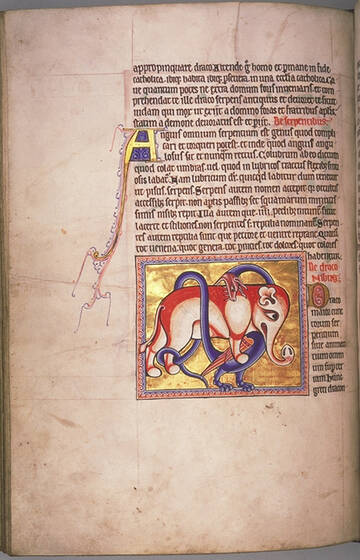 appropinquare draco. Attende g̃ homo et pmane in fide
catholica. ibiq; habita ibiq; psevera in una ecc̃la catholica. Ca
ve quantum potes ne extra domum foris inveniaris et com
prehendat te ille draco serpens antiquus et devoret te sicut
iudam qui mox ut exiit a domino foras et fratribus aplis
statim a demone devoratus est et periit. De serpentibus.
Anguis omnium serpentium est genus quod compli
cari et torqueri potest. et inde quod anguis angu
losus sit et nunquam rectus. Colubrum ab eo dictum
quod colat umbras. vel quod in lubricos tractus flexibus sinu
osis labatur. Nam lubricum dr̃ quicquid labitur dum tenetur
ut piscis. serpens. Serpens autem nomen accepit quia occultis
accessibus serpit. non aptis passibus sed squamarum minutis
simis nisibus repit. Illa autem que .iiii. pedibus nituntur sicut
lacerte et stiliones non serpentes sed reptilia nominantur. Serpen
tes autem reptilia sunt que pectore et ventre reptant. quorum
tot venena quot genera. tot pnicies. tot dolores quot colores
habentur.
De draco
nibus.
Draco
maior cunc
torum ser
pentium
sive animan
tium omni
um super
terram hunc
greci dracon